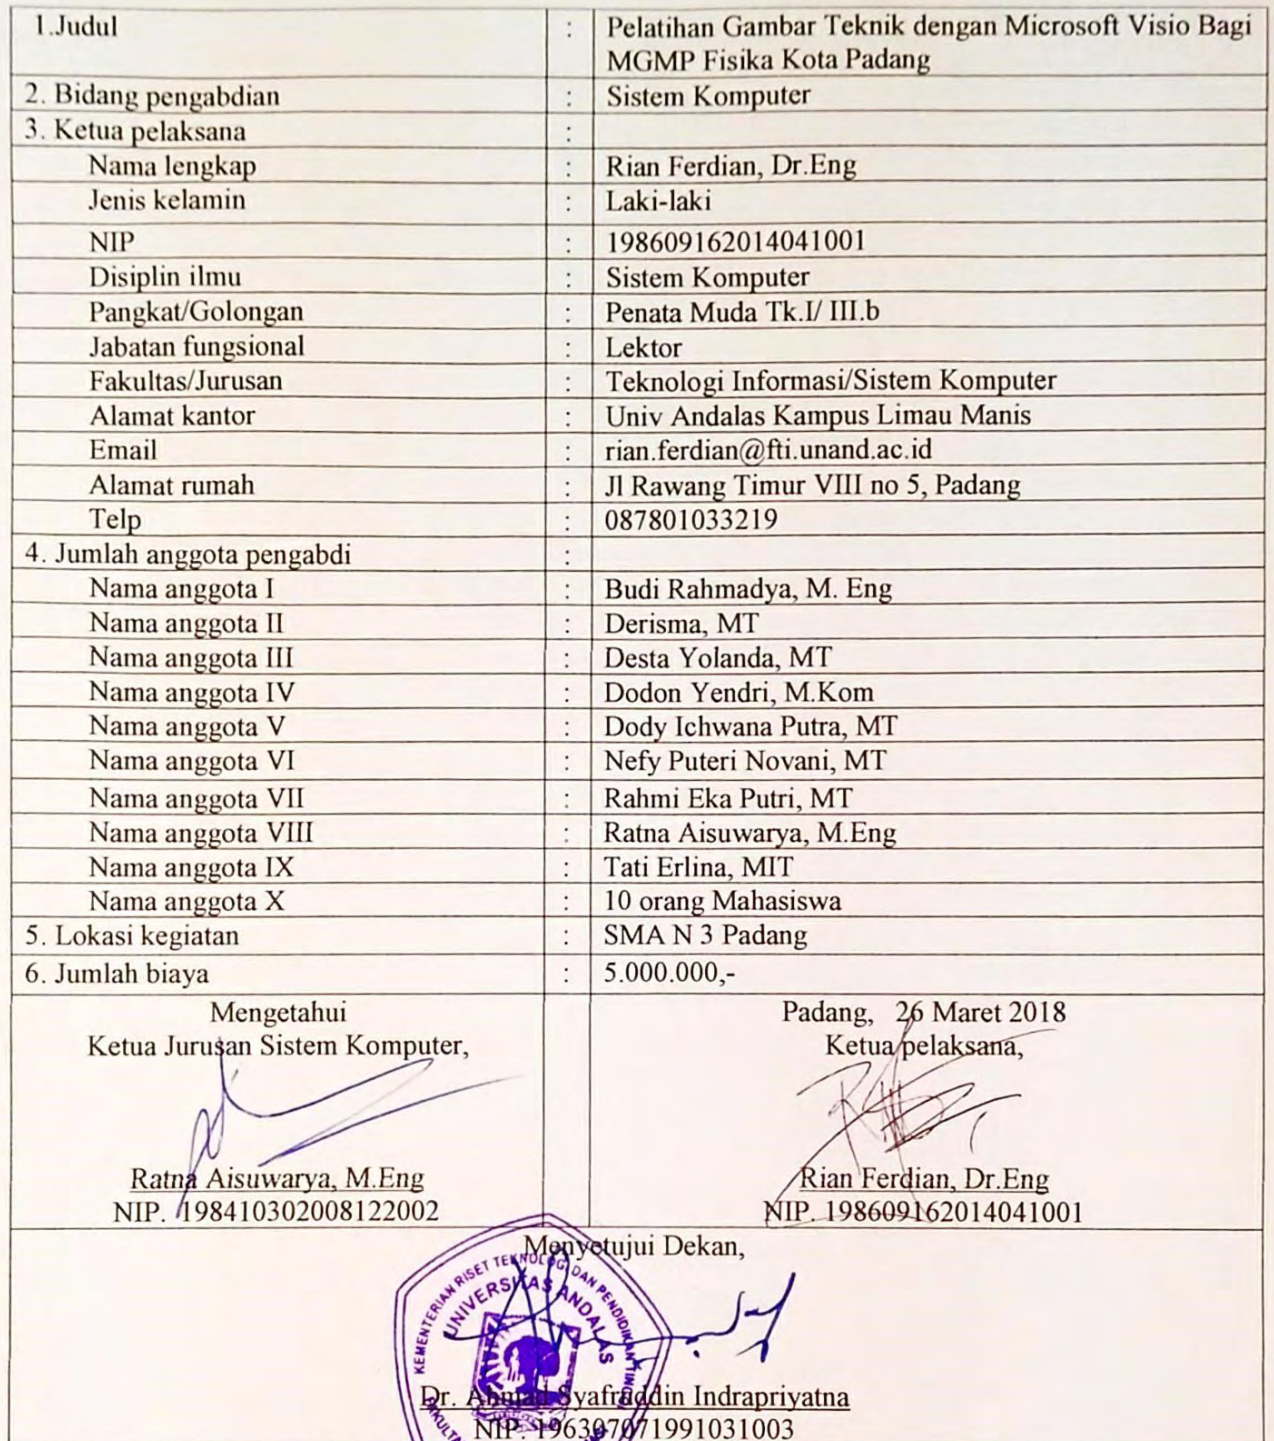 1.Judul : Pelatihan Gambar Teknik dengan Microsoft Visio Bagi
MGMP Fisika Kota Padang
2. Bidang pengabdian : Sistem Komputer
3. Ketua pelaksana :
Nama lengkap : Rian Ferdian, Dr.Eng
Jenis kelamin : Laki-laki
NIP : 198609162014041001
Disiplin ilmu : Sistem Komputer
Pangkat/Golongan : Penata Muda Tk.I/ III.b
Jabatan fungsional : Lektor
Fakultas/Jurusan : Teknologi Informasi/Sistem Komputer
Alamat kantor : Univ Andalas Kampus Limau Manis
Email : rian.ferdian@fti.unand.ac.id
Alamat rumah : Jl Rawang Timur VIII no 5, Padang
Telp : 087801033219
4. Jumlah anggota pengabdi :
Nama anggota I : Budi Rahmadya, M. Eng
Nama anggota II : Derisma, MT
Nama anggota III : Desta Yolanda, MT
Nama anggota IV : Dodon Yendri, M.Kom
Nama anggota V : Dody Ichwana Putra, MT
Nama anggota VI : Nefy Puteri Novani, MT
Nama anggota VII : Rahmi Eka Putri, MT
Nama anggota VIII : Ratna Aisuwarya, M.Eng
Nama anggota IX : Tati Erlina, MIT
Nama anggota X : 10 orang Mahasiswa
5. Lokasi kegiatan : SMA N 3 Padang
6. Jumlah biaya : 5.000.000,-
Mengetahui
Ketua Jurusan Sistem Komputer,
Ratna Aisuwarya, M.Eng
NIP. 198410302008122002
Padang, 26 Maret 2018
Ketua pelaksana,
Rian Ferdian, Dr.Eng
NIP. 198609162014041001
Menyetujui Dekan,
KEMENTERIAN RISET TEKNOLOGI DAN PENDIDIKAN TINGGI
UNIVERSITAS ANDALAS
Dr. Ahmad Syafruddin Indrapriyatna
NIP. 196307071991031003